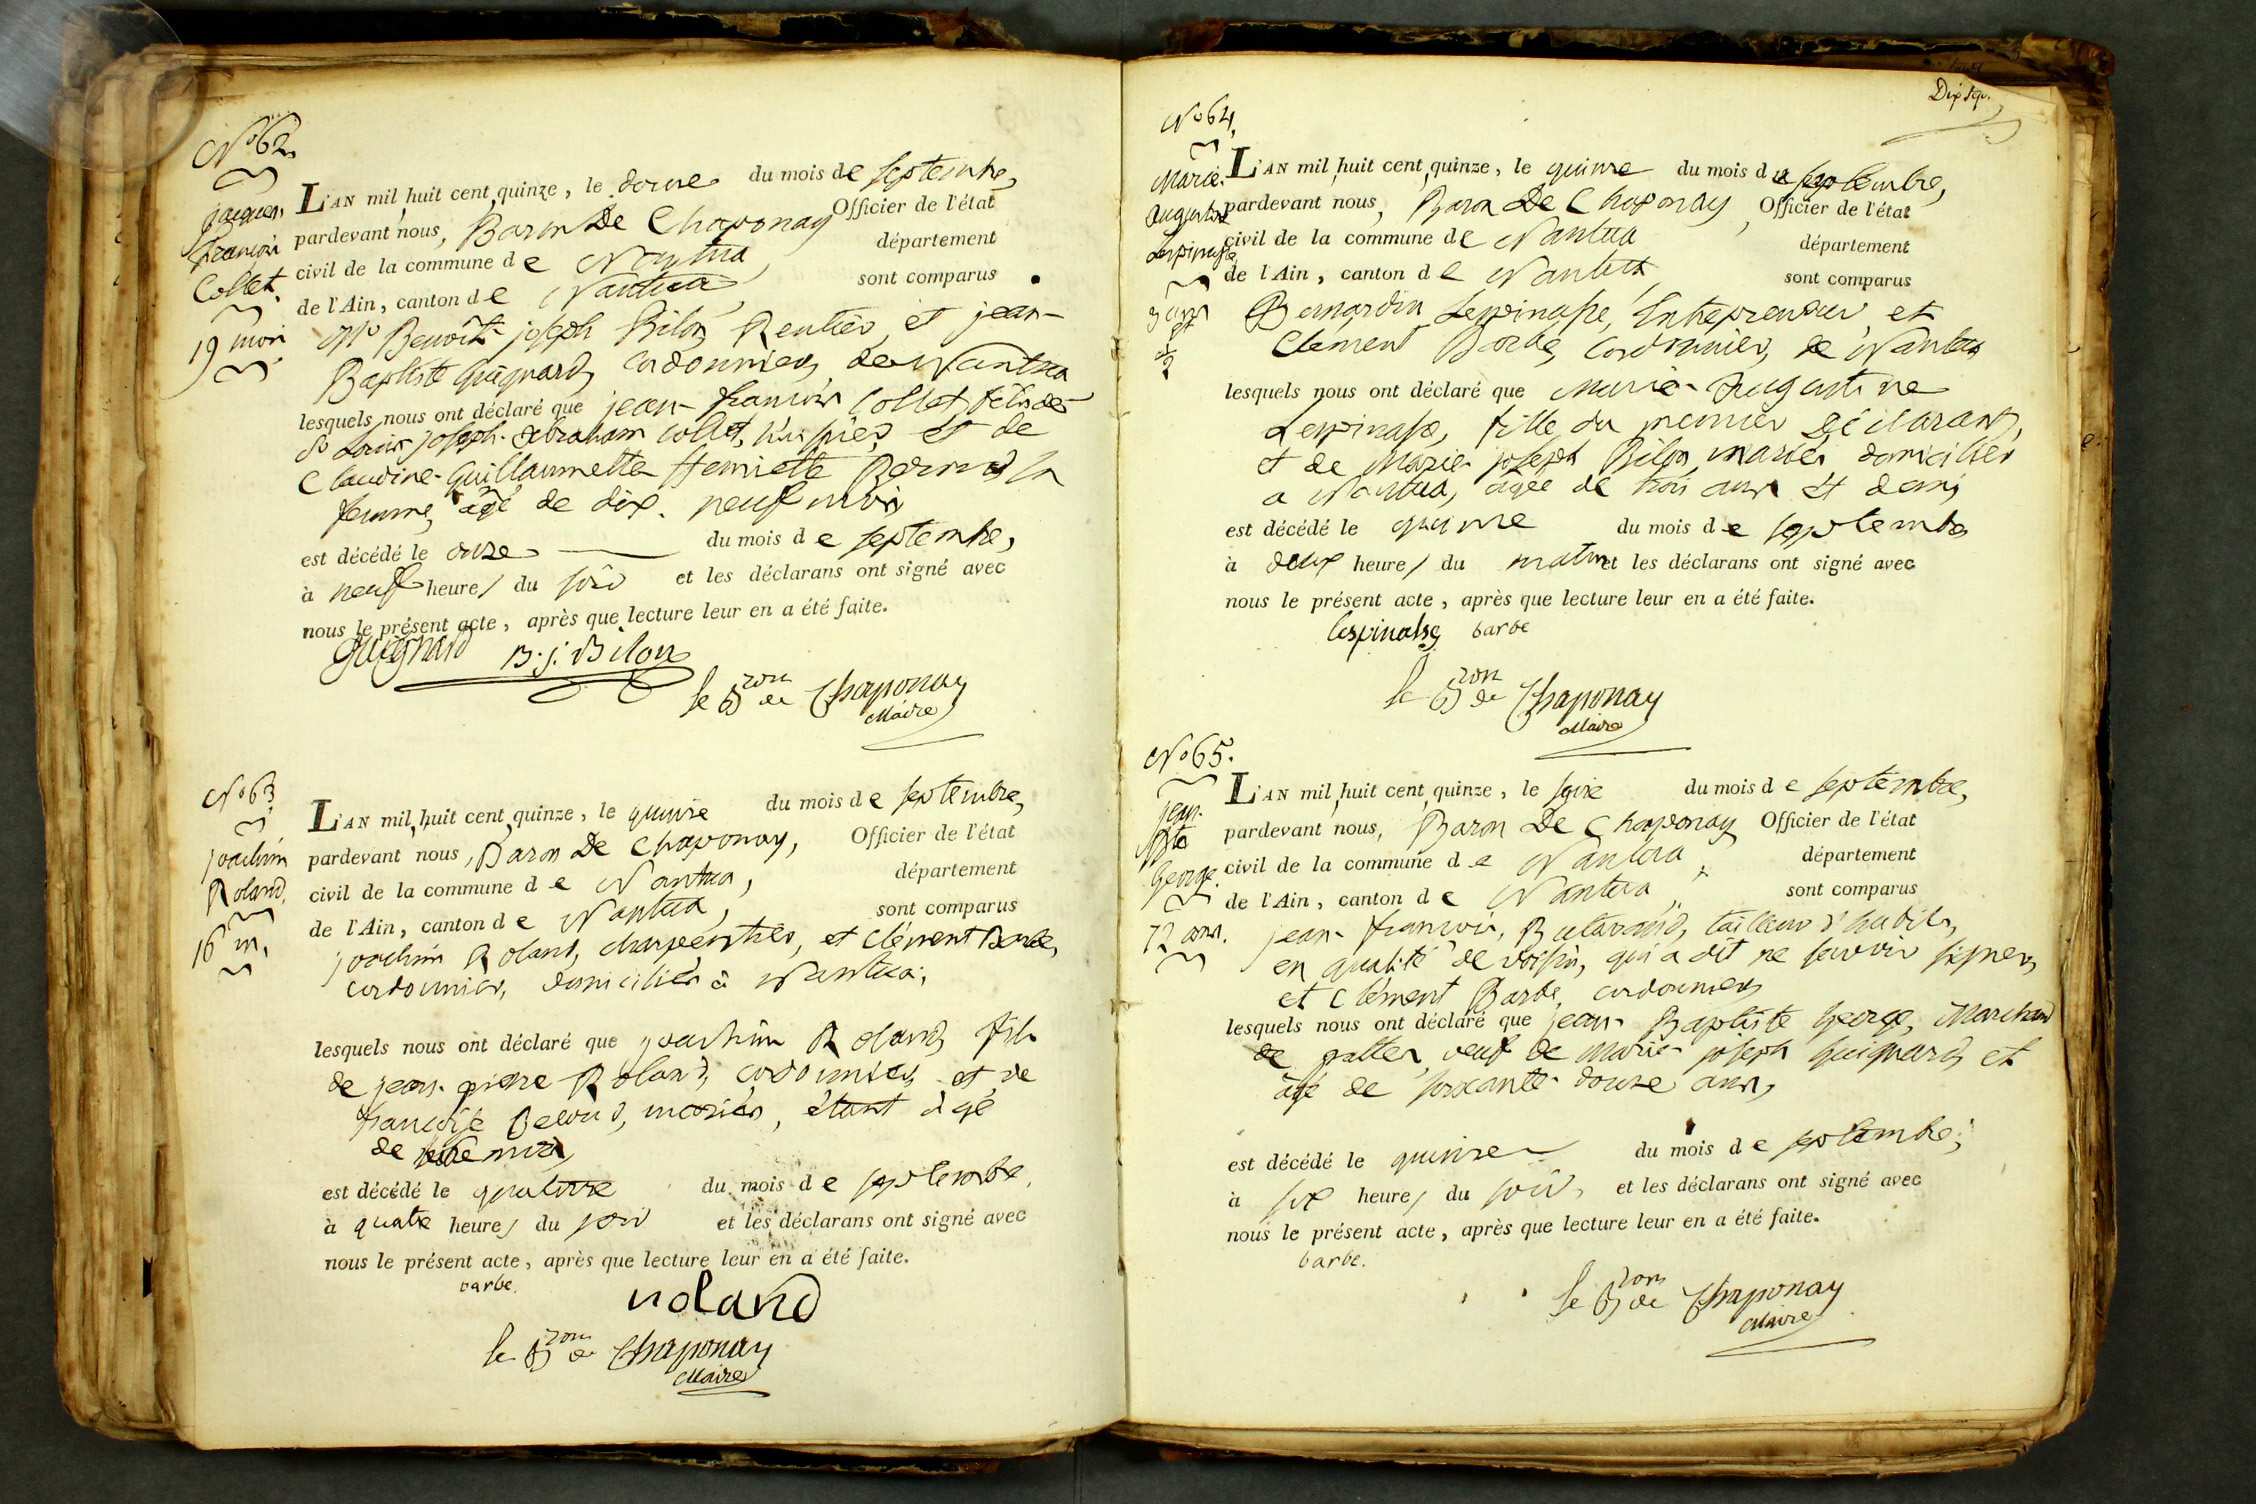 N° 62.
jacques
françois
Collet.
19 mois
L'AN mil huit cent quinze, le douze du mois de septembre,
pardevant nous, Baron De Chaponay Officier de l'état
civil de la commune de Nantua, département
de l'Ain, canton de Nantua, sont comparus
Benoît joseph Bilon, Rentier, et jean-
Baptiste Guignard, cordonnier, de Nantua
lesquels nous ont déclaré que jean-françois Collet, fils de
Sr Louis joseph-abraham collet, huissier, et de
Claudine-Guillaumette Henriette
femme, âgé de dix-neuf mois
est décédé le onze du mois de septembre,
à neuf heures du soir et les déclarans ont signé avec
nous le présent acte, après que lecture leur en a été faite.
guignard B. j. Bilon
le Bron de Chaponay
Maire
N° 63.
joachim
Roland.
16 m.
L'AN mil huit cent quinze, le quinze du mois de septembre,
pardevant nous, Baron De Chaponay, Officier de l'état
civil de la commune de Nantua, département
de l'Ain, canton de Nantua, sont comparus
joachim Roland, charpentier, et Clément Barbe,
cordonnier, domiciliés à Nantua;
lesquels nous ont déclaré que joachim Roland, fils
de jean-pierre Roland, cordonnier, et de
françoise mariés, étant âgé
de seize mois
est décédé le quatorze du mois de septembre,
à quatre heures du soir et les déclarans ont signé avec
nous le présent acte, après que lecture leur en a été faite.
barbe. roland
le Bron de Chaponay
Maire
Dix sept.
N° 64.
Marie-
augustine
Lespinasse
3 ans
1/2
L'AN mil huit cent quinze, le quinze du mois de septembre,
pardevant nous, Baron De Chaponay, Officier de l'état
civil de la commune de Nantua département
de l'Ain, canton de Nantua, sont comparus
Bernardin Lespinasse, Entrepreneur et
Clément Barbe, cordonnier, de Nantua
lesquels nous ont déclaré que Marie-Augustine
Lespinasse, fille du premier Déclarant,
et de Marie-joseph Bilon, mariés, domiciliés
a Nantua, âgée de trois ans et demi
est décédé le quinze du mois de septembre
à deux heures du matin et les déclarans ont signé avec
nous le présent acte, après que lecture leur en a été faite.
Lespinasse barbe
le Bron de Chaponay
Maire
N° 65.
jean-
Bte
George.
72 ans.
L'AN mil huit cent quinze, le seize du mois de septembre,
pardevant nous, Baron De Chaponay Officier de l'état
civil de la commune de Nantua, département
de l'Ain, canton de Nantua, sont comparus
jean-françois, tailleur d'habits,
en qualité de voisin, qui a dit ne savoir signer,
et Clément Barbe, cordonnier
lesquels nous ont déclaré que jean-Baptiste George, Marchand
de pattes, veuf de Marie-joseph Guignard, et
âgé de soixante-douze ans,
est décédé le quinze du mois de septembre;
à six heures du soir, et les déclarans ont signé avec
nous le présent acte, après que lecture leur en a été faite.
barbe.
le Bron de Chaponay
Maire